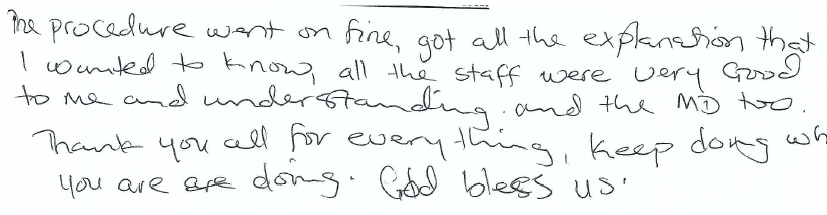 The procedure went on fine, got all the explanation that
I wanted to know, all the staff were very Good
to me and understanding. and the MD too.
Thank you all for every thing, keep doing wh
you are are doing. God bless us.